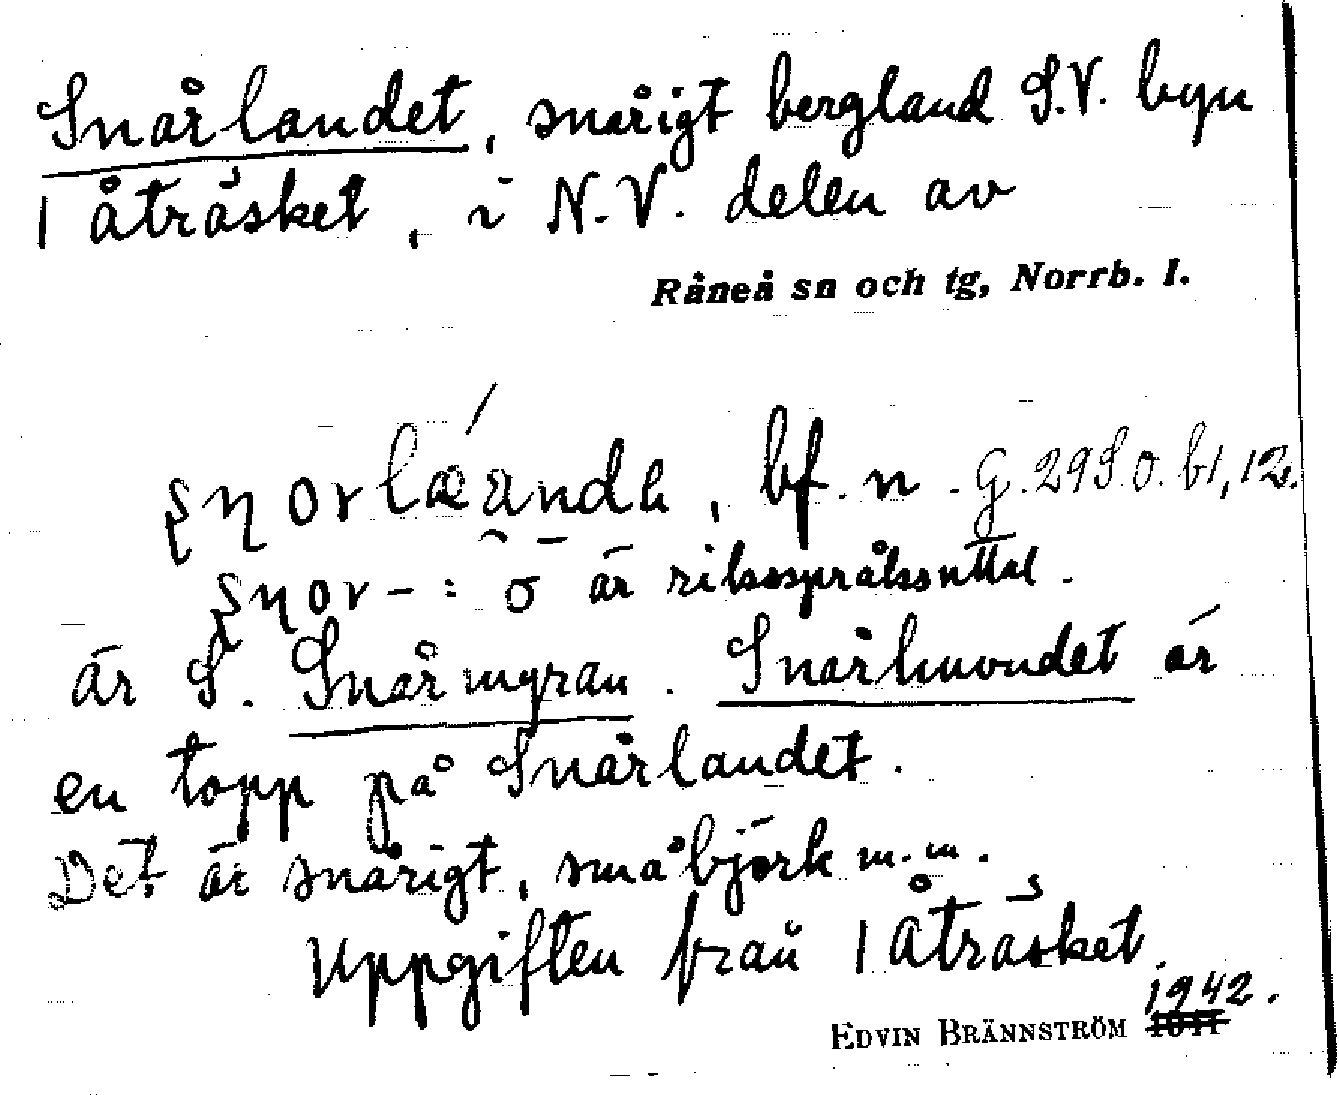 Snårlandet, snårigt bergland S.V. byn
1 åträsket, i N.V. delen av
Råneå sn och tg, Norrb. l.
bf. n. G. 29 S.O. b1, 12.
är riksspråksuttal.
är S. Snårmyran. Snårhuvudet är
en topp på Snårlandet.
Det är snårigt, småbjörk m.m.
Uppgiften från 1 åträsket.
1942.
EDVIN BRÄNNSTRÖM